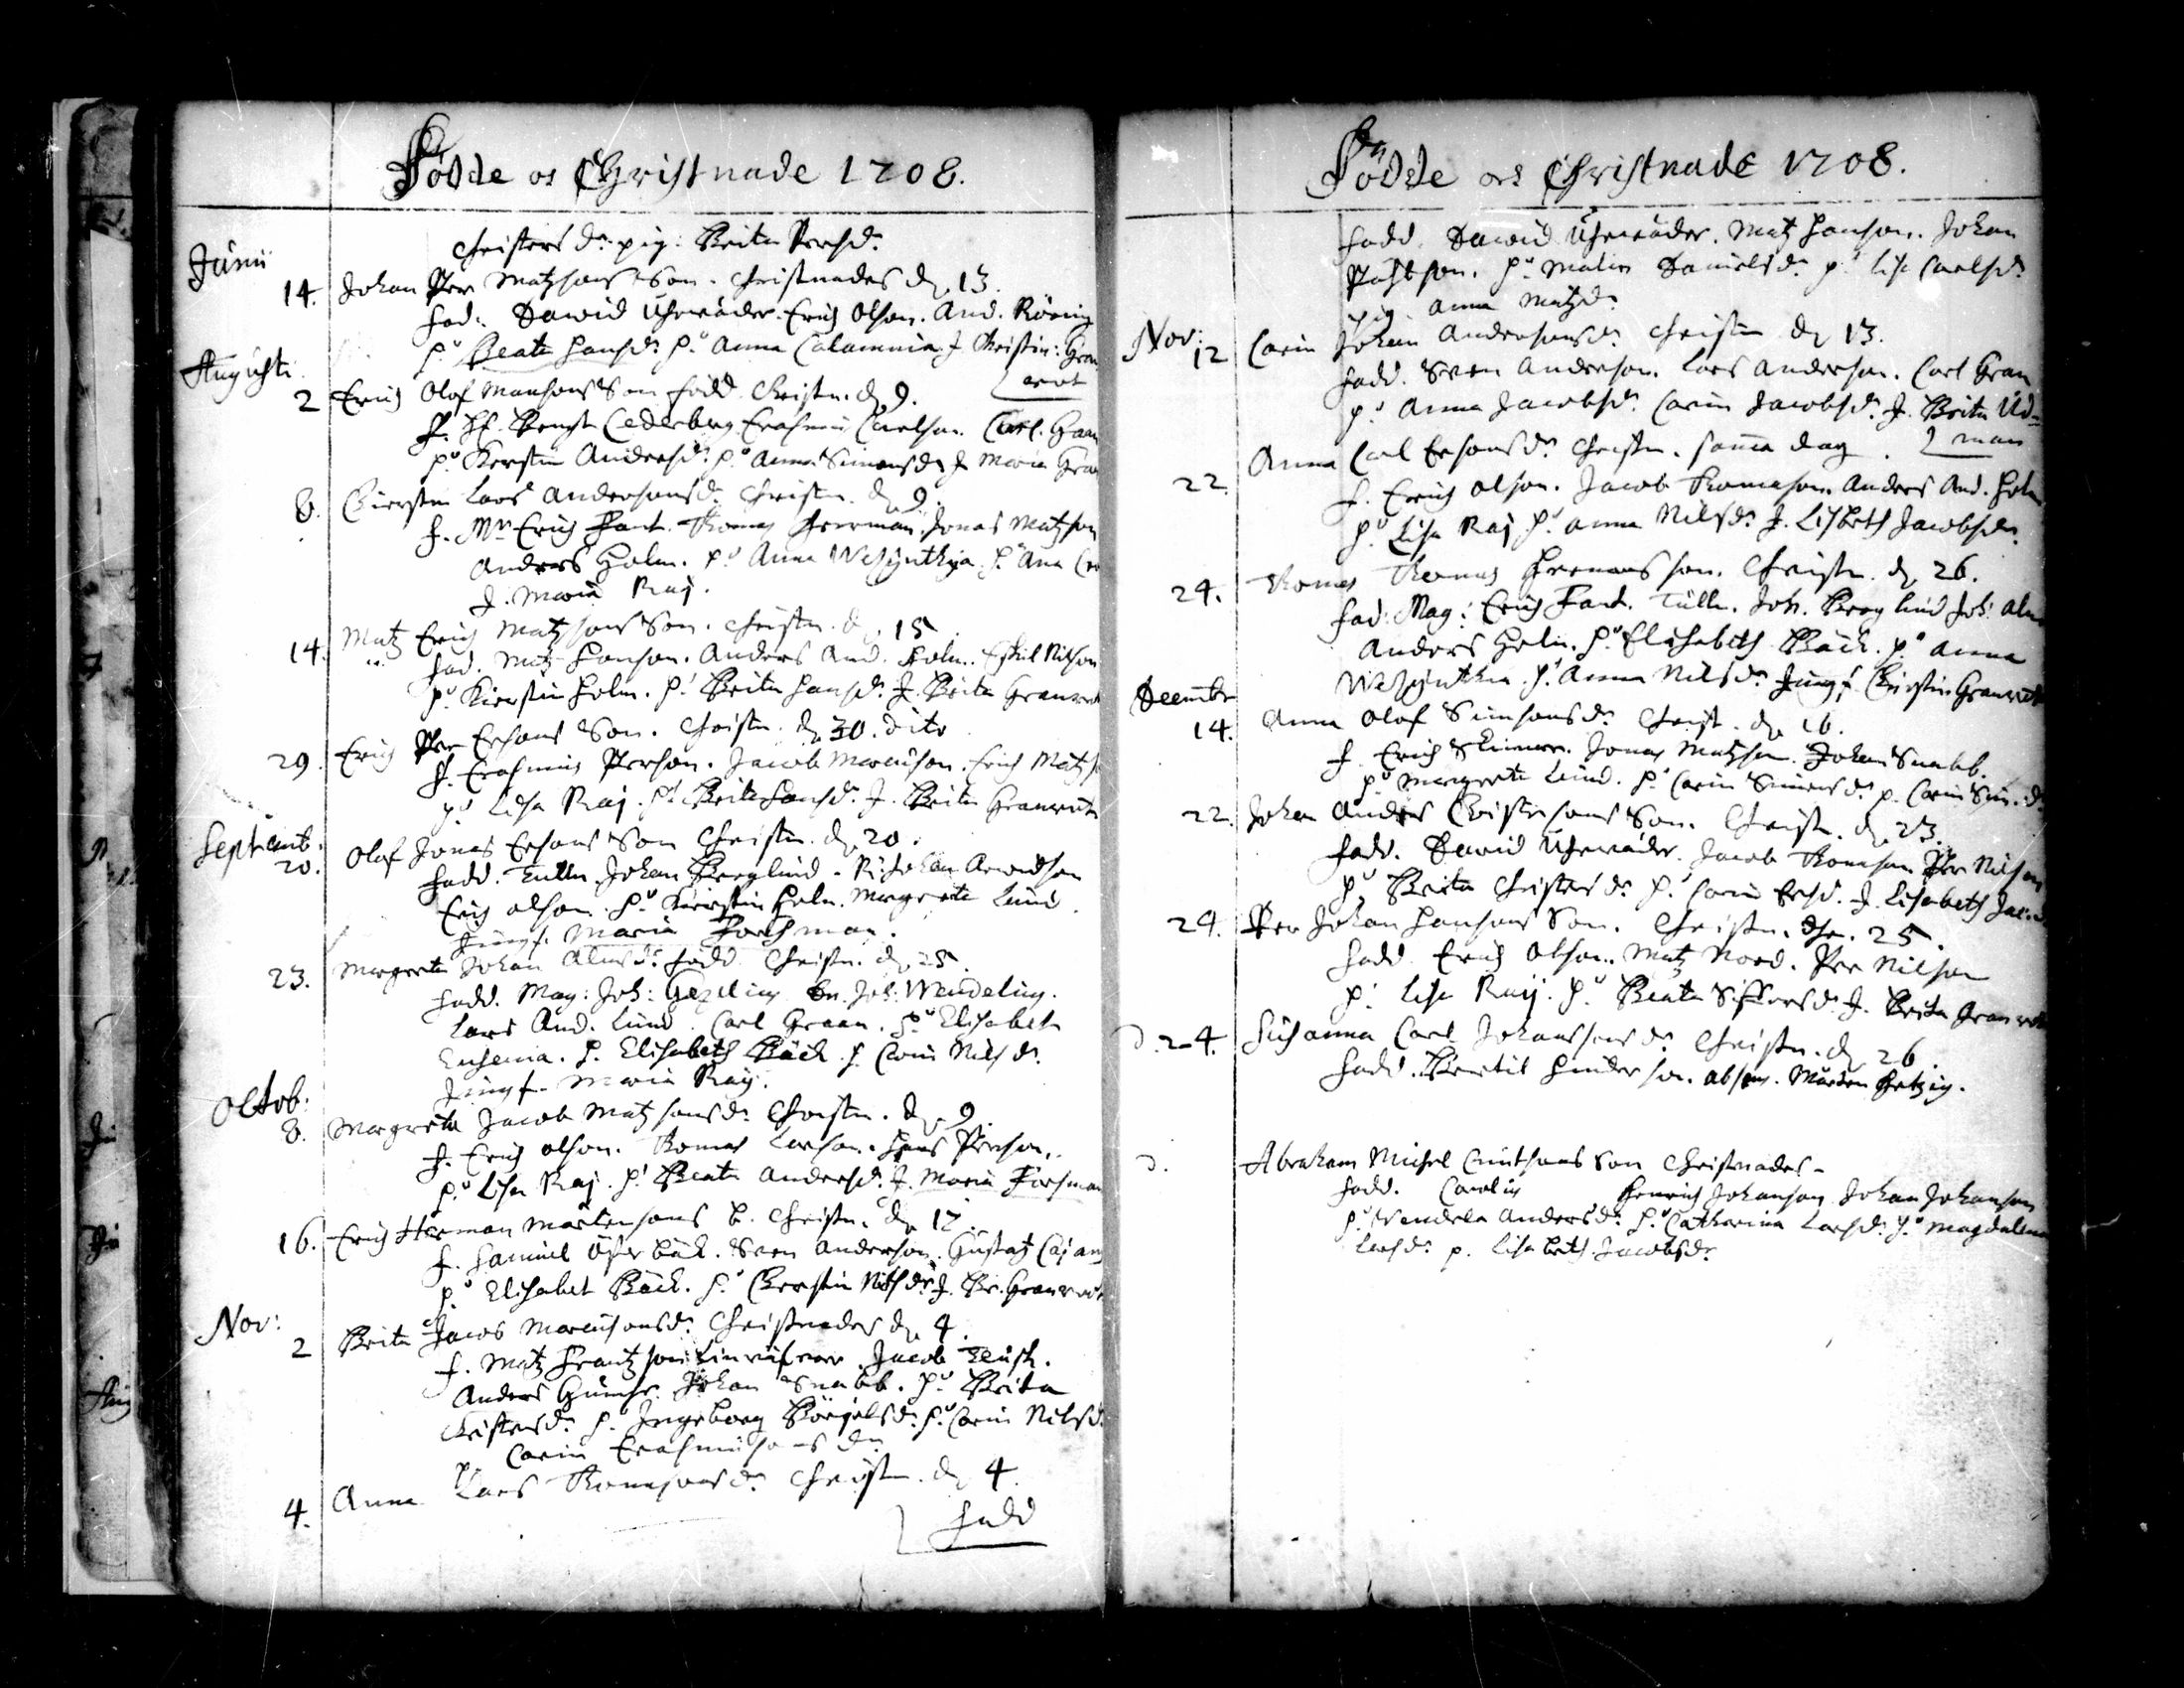 Födde och Christnade 1708.
Christersdr. pig: Brita Persdr.
Junii
14. Johan Per Matzsons Son. Christnades d. 13.
Fad: Dawid Uhrwäder. Erich Olson. And. Röring
hu Beata Hansdr. hu Anna Calamnia J. Christin: Gran
wet
Augusti
2 Erich Olof Monsons Son född Christn. d. 9.
f. Hr. Bengt Cederberg Erasmus Carlson. Carl. Graan
hu Kerstin Andersdr. hu Anna Simonsdr J Maria Gra
8. Kierstin Lars Andersonsdr. Christn. d. 9.
f. Mr Erich Fant. Thomas Herman. Jonas Matzson
Anders Holm. hu Anna Wesynthia. hu Ana
J. Maria Raj.
14. Matz Erich Matzsons Son. Christn. d. 15
fad. Matz Hanson. Anders And. Holm. Eskil Nilson
hu Kierstin Holm. hu Brita Hansdr. J. Brita Granwet
29. Erich Per Ersons Son. Christn. d. 30. dito
f. Erasmus Person. Jacob Marcuson. Erich Matzs
hu Lisa Raj. hu Brita Hansdr. J. Brita Granwet
Septemb.
20. Olof Jonas Ersons Son Christn. d. 20.
fadd. Tulln. Johan Berglund. Johan Arwidson
Erich Olson. hu Kierstin Holm. Margreta Lund.
Jungf. Maria Forsman.
23. Margreta Johan Almsdr. född Christn. d. 25.
fadd. Mag: Joh: Gezelius. Joh: Wendelius.
Lars And. Lund. Carl Graan. hu Elisabet
Enhenia. h. Elisabeth Bäck. h. Carin Nilsdr.
Jungf. Maria Raij.
Octob:
8. Margreta Jacob Matzsonsdr. Christn. d. 9.
f. Erich Olson. Thomas Larson. Hans Person.
hu Lisa Raj. hu Beata Andersdr. J. Maria Forsman
16. Erich Herman Mårtensons b. Christn. d. 17.
f. Samuel Österbäck. Sven Anderson. Gustaf Cajan
hu Elisabet Bäck. hu Kerstin Nilsdr. J. Br. Granwet
Nov:
2 Brita Jacob Marcusonsdr. Christnades d. 4.
f. Matz Frantzson Jacob Teusk.
Anders Johan Snabb. hu Brita
Christersdr. h. Ingeborg Börjelsdr. hu Carin Nilsd.
Carin Erasmusonsdr.
4. Anna Lars Thomsonsdr. Christn. d. 4.
fadd
Födde och Christnade 1708.
fadd. Dawid Uhrwäder. Matz Hanson. Johan
hu Malin Danielsdr. p. Lisa Carlsdr.
pig Anna Matzdr.
Nov:
12 Carin Johan Andersonsdr. Christn d. 13.
fadd. Sven Anderson. Lars Anderson. Carl Gran
hu Anna Jacobsdr. Carin Jacobsdr. J. Brita Ud-
man
22. Anna Carl Ersonsdr. Christn. sama dag
f. Erich Olson. Jacob Thomason. Anders And. Holm
hu Lisa Raj hu Anna Nilsdr. J. Lisbeth Jacobsdr.
24. Thomas Thomas Hermans son. Christn. d. 26.
fad: Mag: Erich Fant. Tulln. Joh. Berglund Joh: Alm
Anders Holm. hu Elisabeth Bäck. hu Anna
Wesynthia. hu Anna Nilsdr. Jungf. Kierstin Granwet
Decembr
14. Anna Olof Simsonsdr. Christ. d. 16.
f. Erich Skinnar. Jonas Matzson. Johan Snabb.
hu Margreta Lund. hu Carin Simonsdr. p. Carin Sim. d.
22. Johan Anders Christersons Son. Christn. d. 23.
fadd. Dawid Uhrwäder. Jacob Thomson. Per Nilson
hu Brita Christersdr. hu Carin Ersd. J. Lisabeth Jacob
24. Per Johan Hansons Son. Christn. den. 25.
fadd. Erich Olson. Matz Nord. Per Nilson
hu Lisa Raij. hu Beata Siffersdr. J. Brita Granwet
d. 24. Susanna Carl Johanssons dr. Christn. d. 26.
fadd. Bertil Hinderson. absens. Mårten Hetzig.
d. Abraham Michel Cnutsons Son Christnades-
fadd. Carolus Henrich Johanson Johan Johanson
hu Vendela Andersdr. hu Catharina Larsdr. hu Magdalena
Larsdr. p. Lisabeth Jacobsdr.